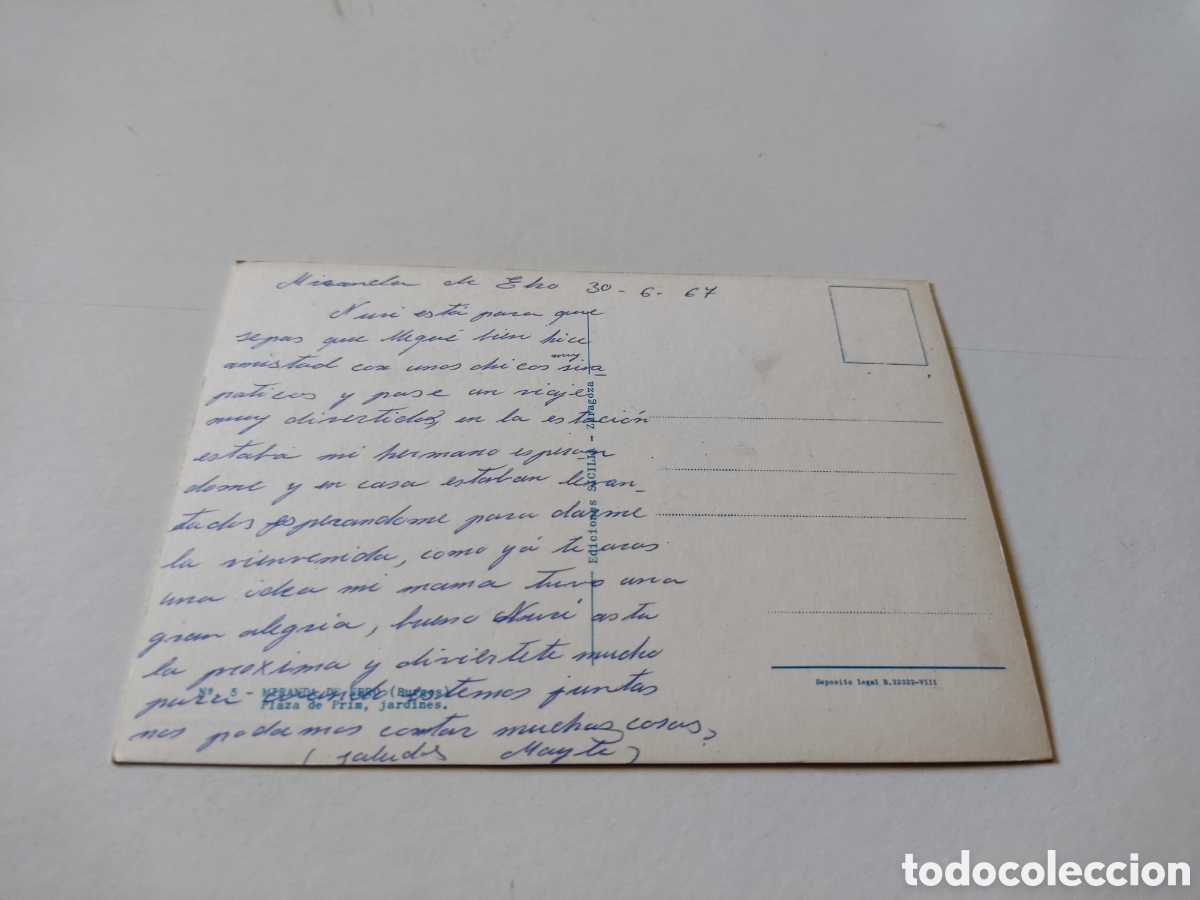 Miranda de Ebo 30-6-67
Nuri está para que
sepas que llegué bien hice
amistad con unos chicos muy sim
paticos y pase un viaje
muy divertido, en la estación
estaba mi hermano esperan
dome y en casa estaban levan-
tados esperandome para darme
la vienvenida, como yá te aras
una idea mi mama tuvo una
gran alegria, bueno Nuri asta
la proxima y diviertete mucho
para cuando estemos juntas
nos podamos contar muchas cosas,
(saludos Mayte)
Nº. 5 - MIRANDA DE EBRO (Burgos)
Plaza de Prim, jardines.
Ediciones SICILIA - Zaragoza
Deposito legal B.22322-VIII
todocoleccion